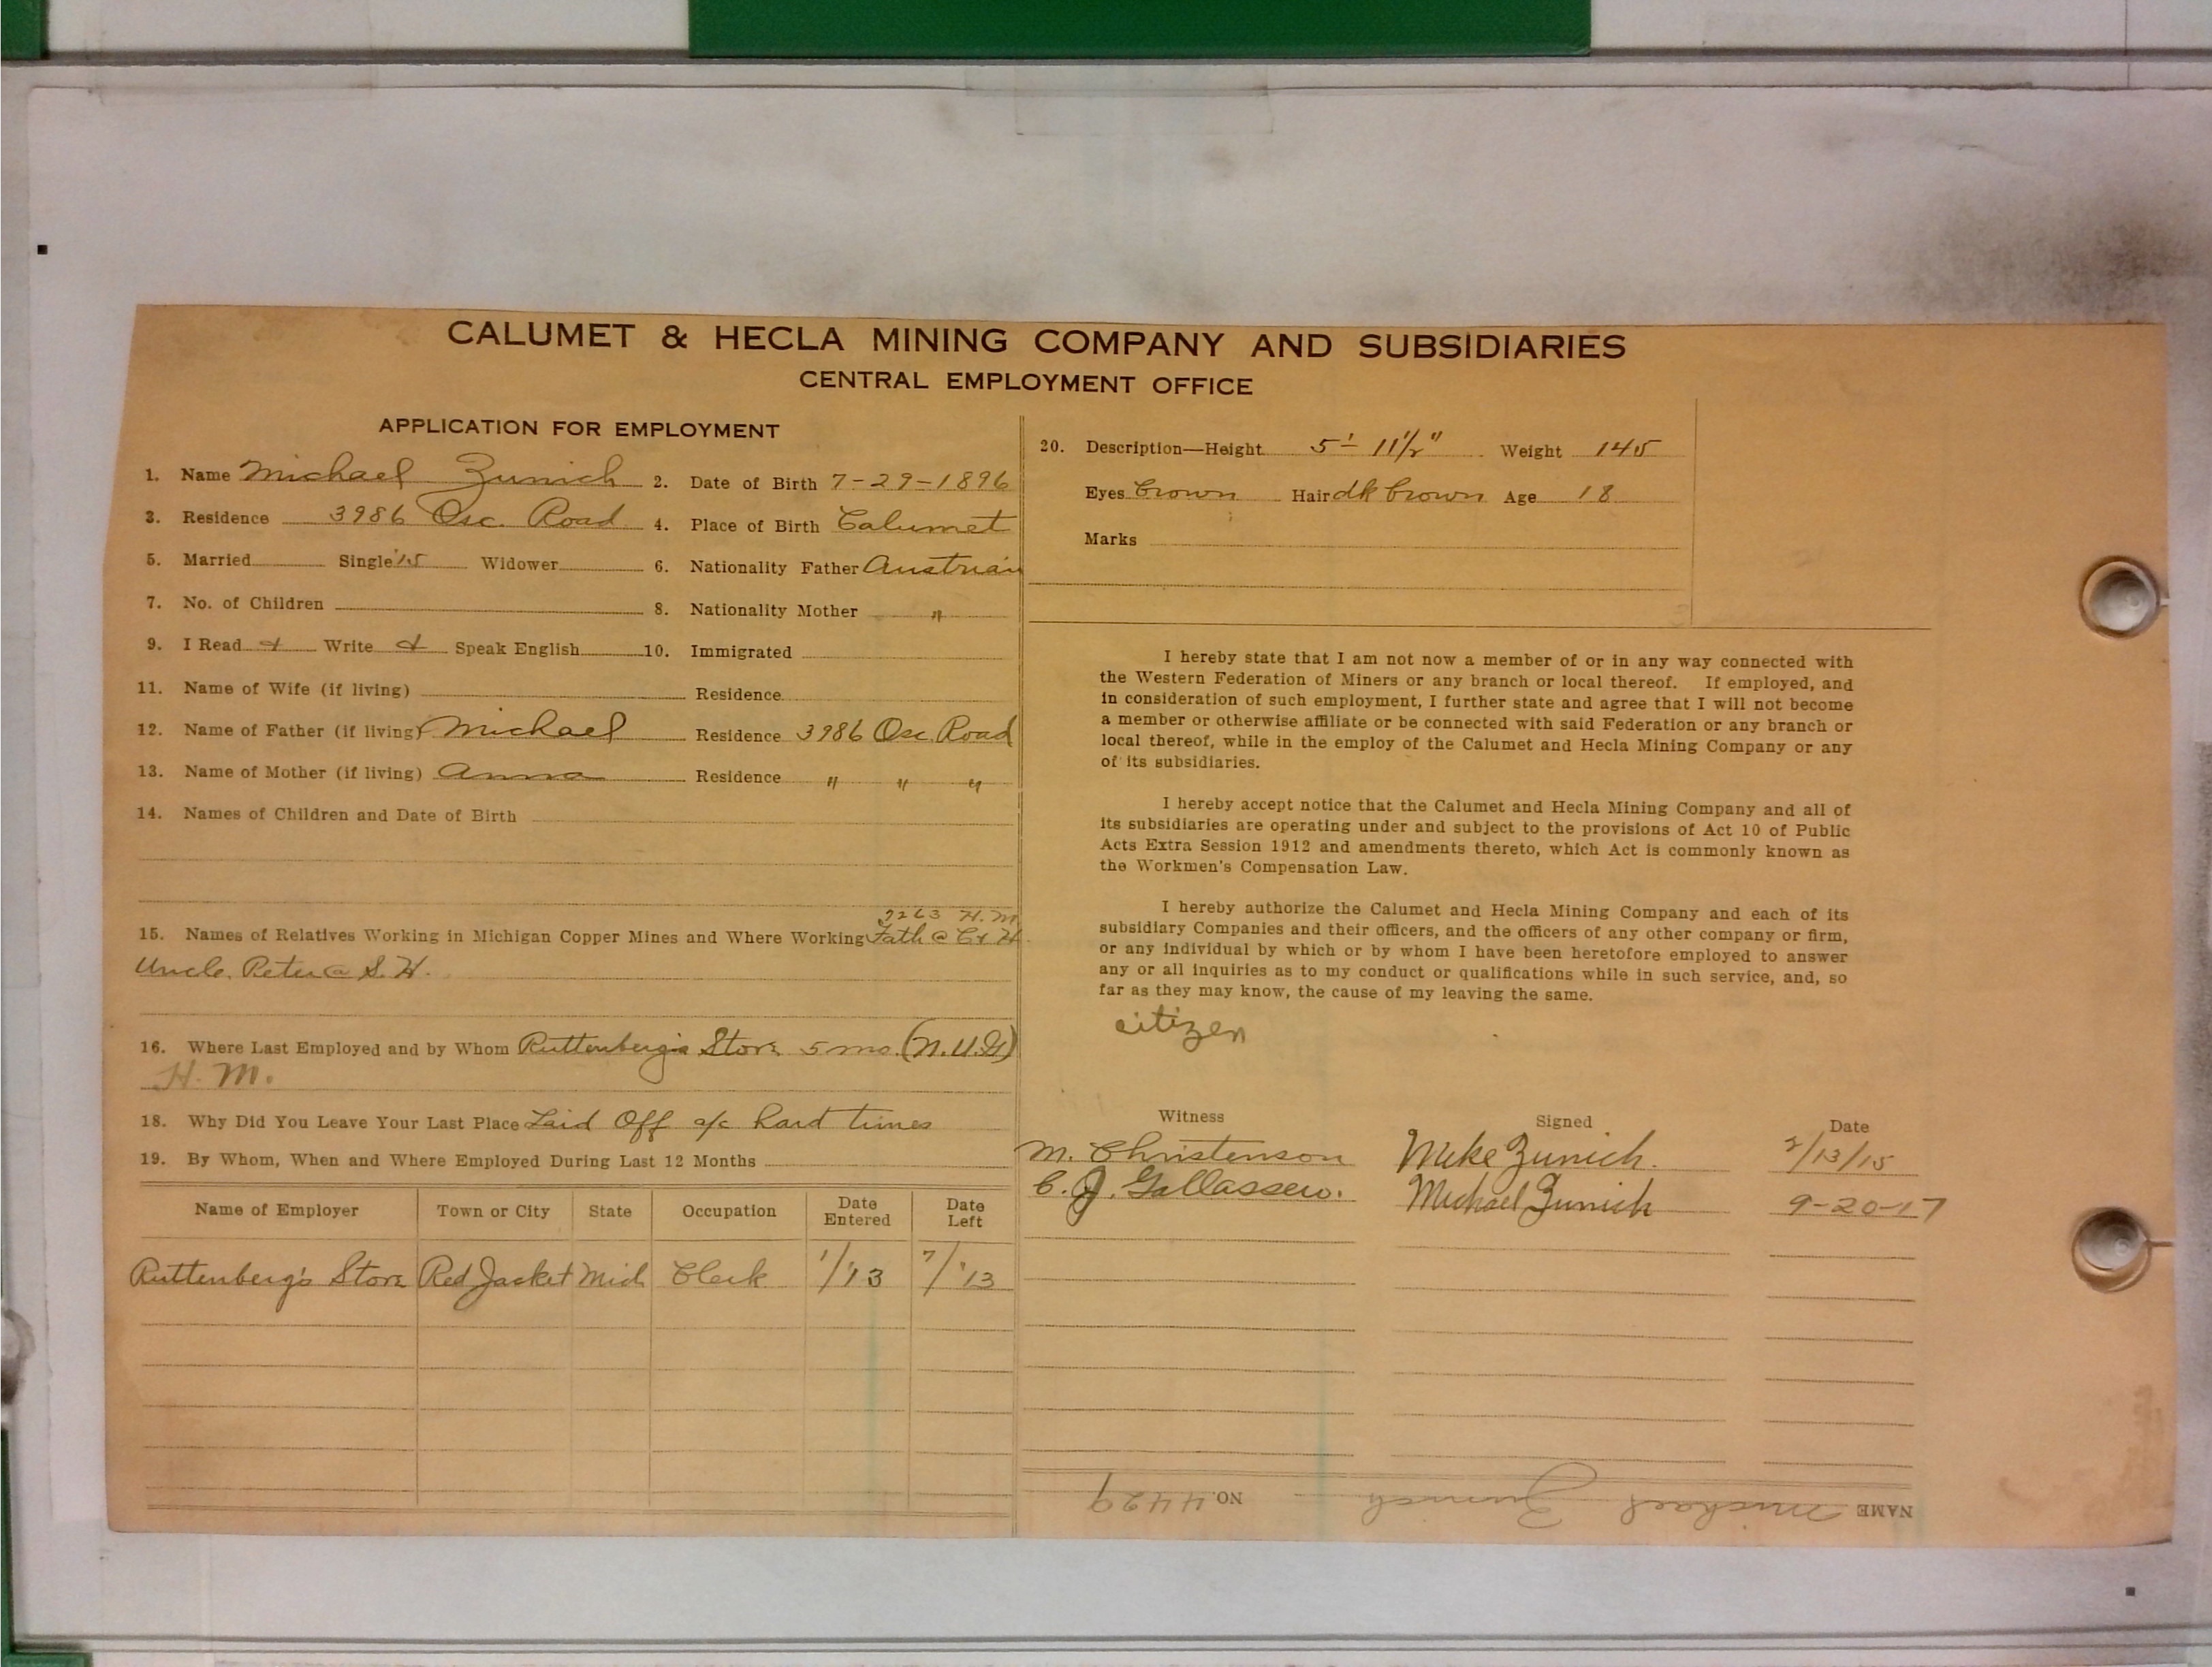 CALUMET & HECLA MINING COMPANY AND SUBSIDIARIES
CENTRAL EMPLOYMENT OFFICE
APPLICATION FOR EMPLOYMENT
1. Name Michael Zunich 2. Date of Birth 7-29-1896
3. Residence 3986 Osc. Road 4. Place of Birth Calumet
5. Married Single '15 Widower 6. Nationality Father Austrian
7. No. of Children 8. Nationality Mother "
9. I Read & Write & Speak English 10. Immigrated
11. Name of Wife (if living) Residence
12. Name of Father (if living) Michael Residence 3986 Osc. Road
13. Name of Mother (if living) Anna Residence " " "
14. Names of Children and Date of Birth
H. M.
15. Names of Relatives Working in Michigan Copper Mines and Where Working Fath @ C & H
Uncle. Peter @ S. H.
16. Where Last Employed and by Whom Ruttenberg's Store 5 mo. (N.U.G)
H. M.
18. Why Did You Leave Your Last Place Laid Off a/c hard times
19. By Whom, When and Where Employed During Last 12 Months
Name of Employer Town or City State Occupation Date Entered Date Left
Ruttenberg's Store Red Jacket Mich Clerk 1/'13 7/'13
20. Description—Height 5' - 11½" Weight 145
Eyes brown Hair dk brown Age 18
Marks
I hereby state that I am not now a member of or in any way connected with
the Western Federation of Miners or any branch or local thereof. If employed, and
in consideration of such employment, I further state and agree that I will not become
a member or otherwise affiliate or be connected with said Federation or any branch or
local thereof, while in the employ of the Calumet and Hecla Mining Company or any
of its subsidiaries.
I hereby accept notice that the Calumet and Hecla Mining Company and all of
its subsidiaries are operating under and subject to the provisions of Act 10 of Public
Acts Extra Session 1912 and amendments thereto, which Act is commonly known as
the Workmen's Compensation Law.
I hereby authorize the Calumet and Hecla Mining Company and each of its
subsidiary Companies and their officers, and the officers of any other company or firm,
or any individual by which or by whom I have been heretofore employed to answer
any or all inquiries as to my conduct or qualifications while in such service, and, so
far as they may know, the cause of my leaving the same.
citizen
Witness Signed Date
M. Christenson Mike Zunich. 2/13/15
C. J. Michael Zunich 9-20-17
NAME Michael Zunich NO. 4429